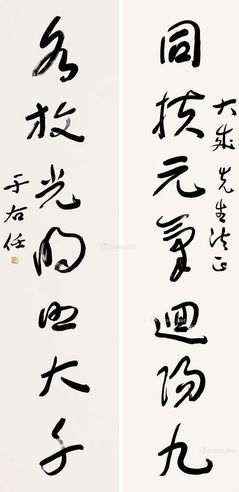 大成先生法正
同扶元氣迴陽九
各放光明照大千
于右任